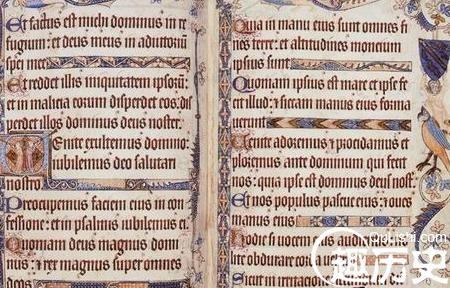 Et factus est michi dominus in re
fugium: et deus meus in adiutoriū
spei mee
Et reddet illis iniquitatem ipsorū:
et in malicia eorum disperdet eos: dis
perdet illos dominus deus noster.
Uenite exultemus domino:
iubilemus deo salutari
nostro
Preocupemus faciem eius in con
fessione: et in psalmis iubilemus ei
Quoniam deus magnus domi
nus: & rex magnus super omnes
deos
Quia in manu eius sunt omnes fi
nes terre: et altitudines moncium
ipsius sunt
Quoniam ipsius est mare et ipse fe
cit illud: & siccam manus eius forma
uerunt
Uenite adoremus & procidamus et
ploremus ante dominum qui fecit
nos: quia ipse est dominus deus nost
Et nos populus pascue eius: & oues
manus eius
Hodie si uocem eius
lite obdurare cor
Sicut in irritatione
Qulishi.com
趣历史